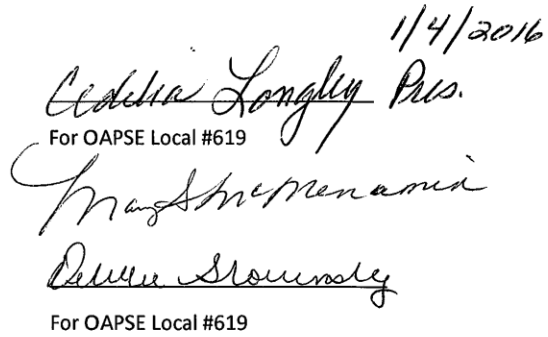 1/4/2016
Cedelia Longley Pres.
For OAPSE Local #619
Mary S McMenamin
Debbie
For OAPSE Local #619